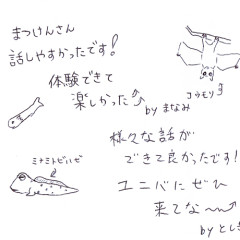 まつけんさん
話しやすかったです!
体験できて
楽しかった
by まなみ
コウモリ
様々な話が
できて良かったです!
ミナミトビハゼ
ユニバにぜひ
来てな〜
by としき